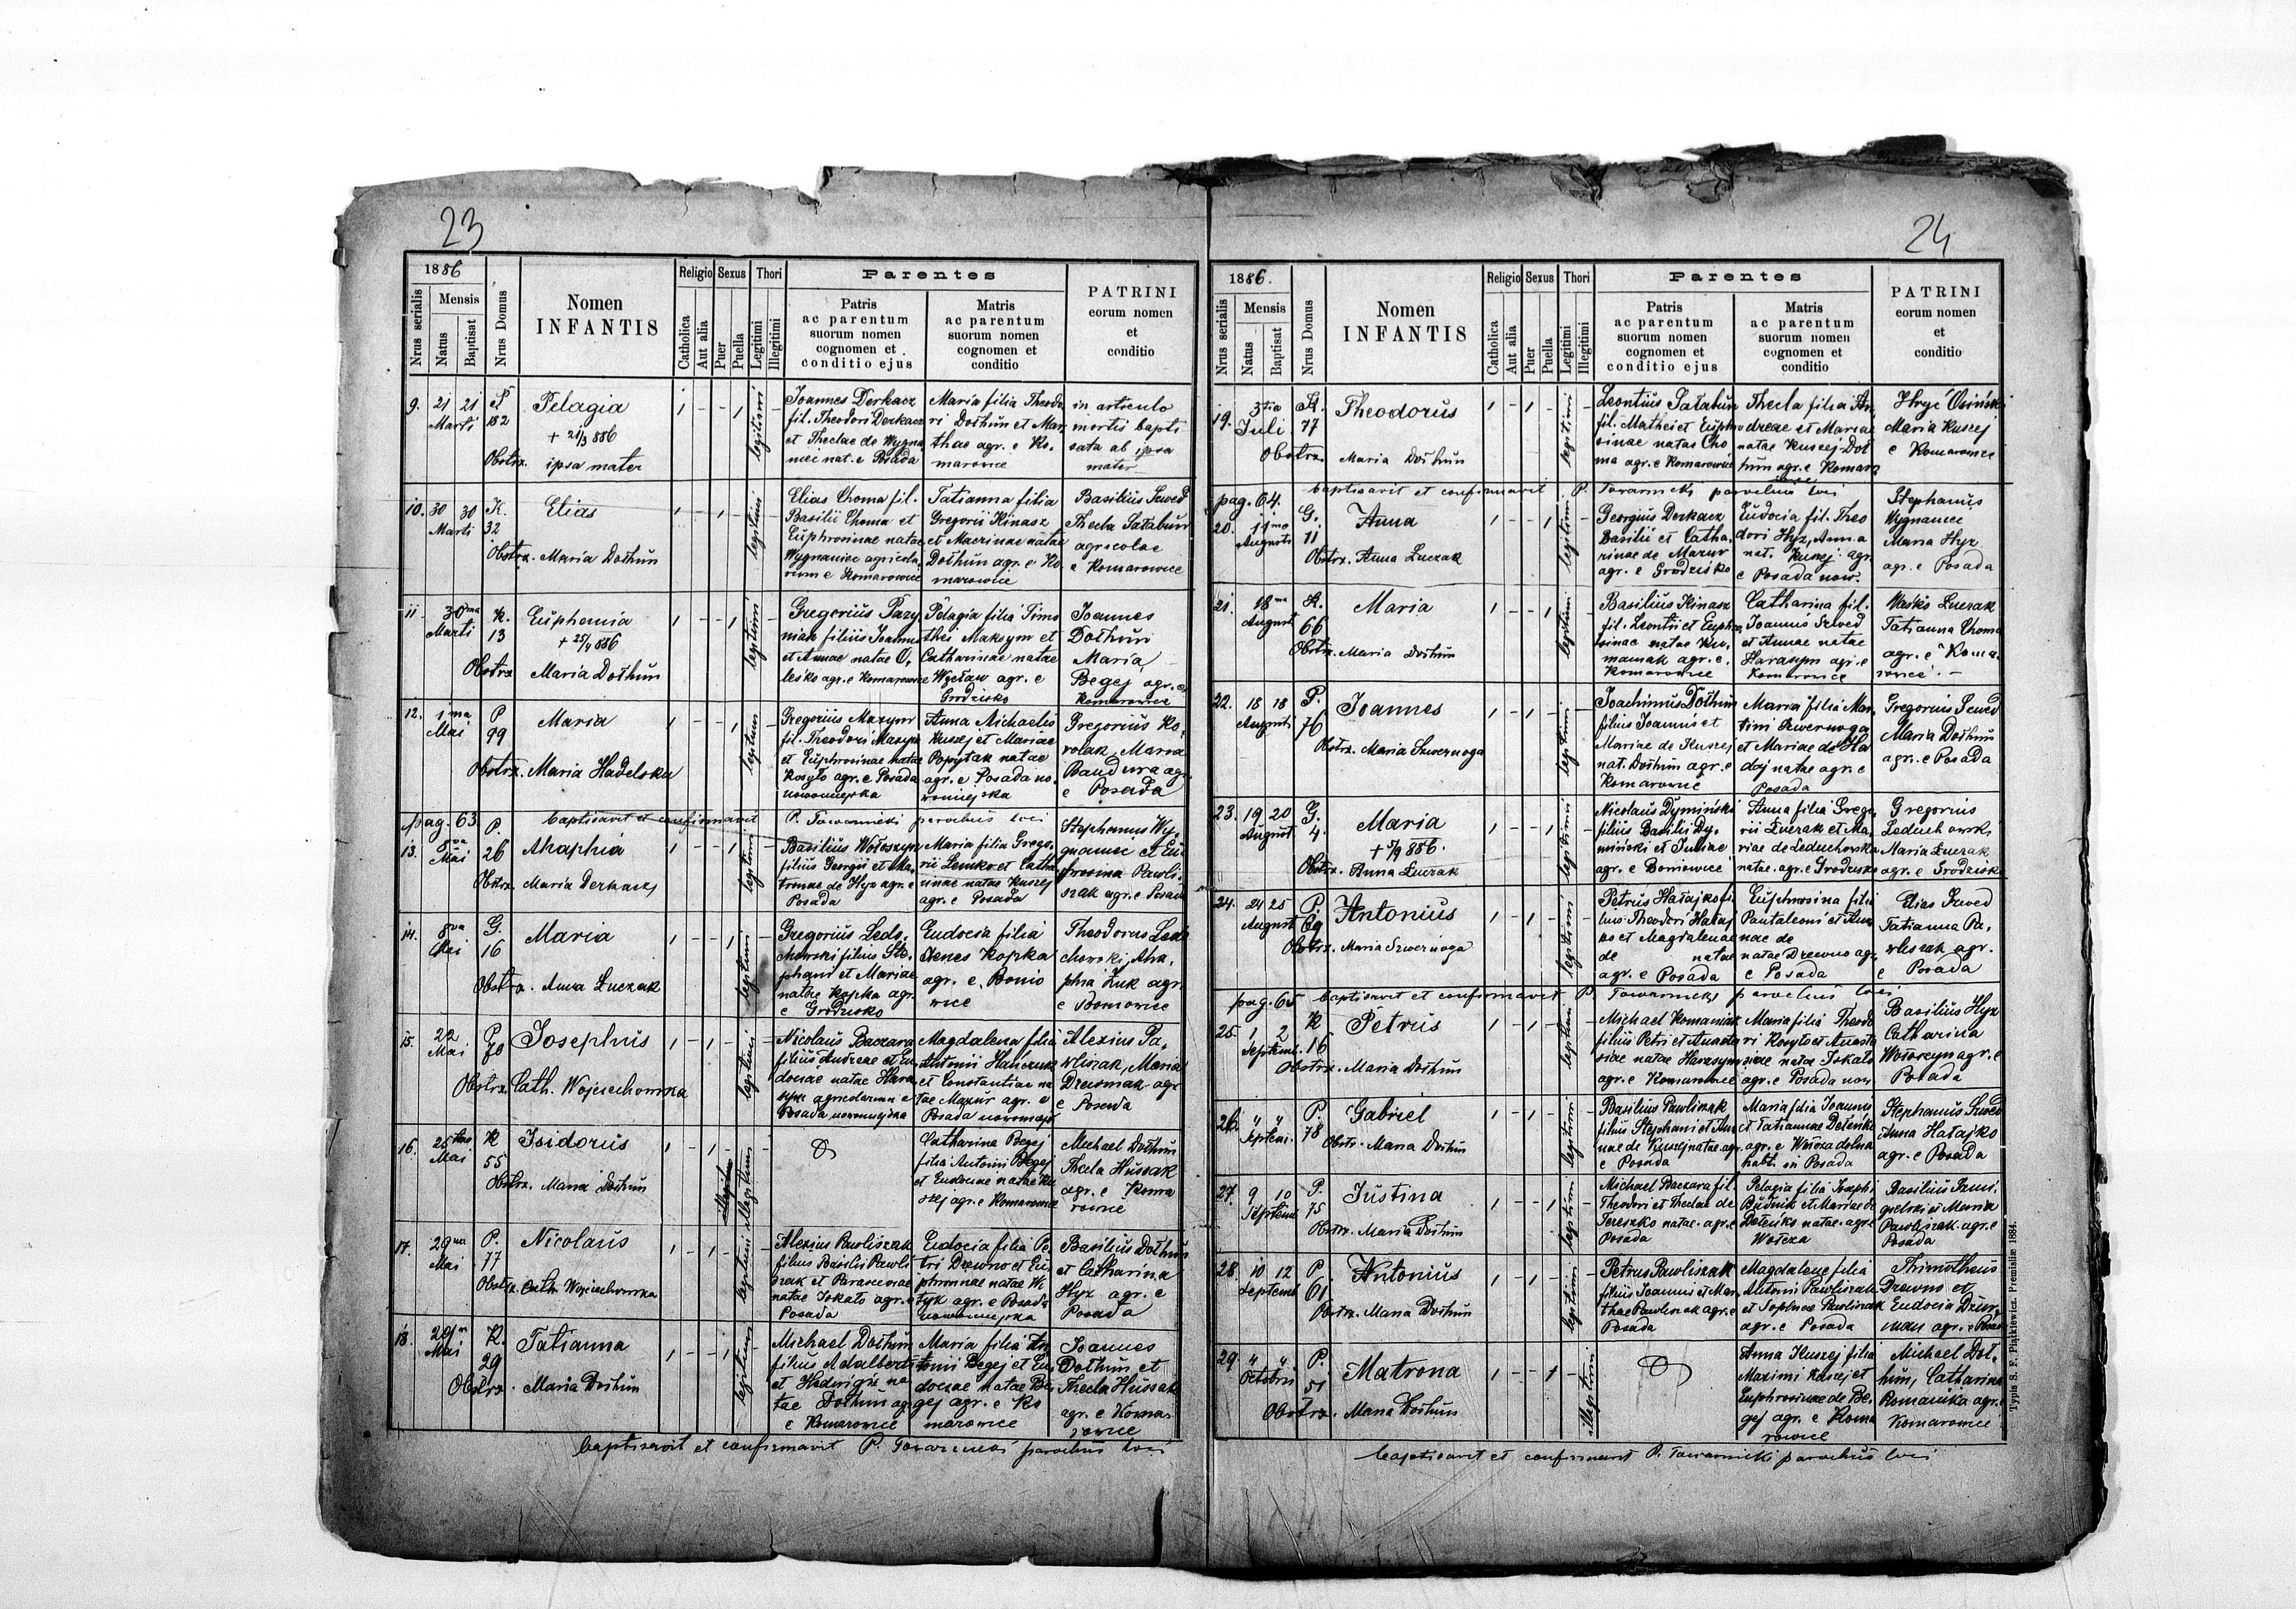 23
1886
Nrus serialis
Mensis
Natus
Baptisat
Nrus Domus
Nomen
INFANTIS
Religio
Catholica
Aut alia
Sexus
Puer
Puella
Thori
Legitimi
Illegitimi
Parentes
Patris
ac parentum
suorum nomen
cognomen et
conditio ejus
Matris
ac parentum
suorum nomen
cognomen et
conditio
PATRINI
eorum nomen
et
conditio
9. 21 21 P
Marti 182
Pelagia
+ 21/3 886
Obstrx. ipsa mater
1 - - 1 legitimi -
Joannes Derkacz
fil. Theodori Derkacz
et Theclae de Wygna
niec nat. e Posada
Maria filia Theodo
ri Dołhun et Mar
thae agr. e Ko.
marowce
in articulo
mortis bapti
sata ab ipsa
mater
10. 30 30 K.
Marti 32
Elias
Obstrx. Maria Dołhun
1 - 1 - legitimi -
Elias Choma fil.
Basilii Choma et
Euphrosinae natae
Wygnaniec agricola
rum e Komarowice
Tatianna filia
Gregorii Kinasz
et Macrinae natae
Dołhun agr. e Ko
marowice
Basilius Szwed
Thecla Satabun
agricolae
e Komarowce
11. 30ma K.
Marti 13
Euphemia
+ 25/4 886
Obstrx Maria Dołhun
1 - - 1 legitimi -
Gregorius Pazy
niak filius Joannis
et Annae natae O,
lesko agr. e Komarowce
Pelagia filia Timo
thei Maksym et
Catharinae natae
Węcław agr. e
Grodzisko
Joannes
Dołhun
Maria
Begej agr. e
Komarowce
12. 1ma P
Mai 99
Maria
Obstrx. Maria Hadelska
1 - - 1 legitimi -
Gregorius Maxym
fil. Theodori Maxym
et Euphrosinae natae
Kosyło agr. e Posada
nowomiejska
Anna Michaelis
Kuszej et Mariae
Popytak natae
agr. e Posada no
womiejska
Gregorius Ko,
rolak, Maria
Bandura agr
e Posada
pag. 63 baptisavit et confirmavit P. Towarnicki parochus loci
13. 8va P.
Mai 26
Ahaphia
Obstrx. Maria Derkacz
1 - - 1 legitimi -
Basilius Wołoszyn
filius Georgii et Ma,
tronae de Hyz agr. e
Posada
Maria filia Grego,
rii Lemko et Catha
rinae natae Kuszej
agr. e Posada
Stephanus Wy,
gnaniec et Eu
frosina Pawli
szak agr. e Posada
14. 8va G.
Mai 16
Maria
Obstrx. Anna Łuczak
1 - - 1 legitimi -
Gregorius Ledu,
chowski filius Ste,
phani et Mariae
natae Kopka agr.
e Grodzisko
Eudocia filia
Kopka
agr. e. Bonio
wice
Theodorus Ledu
chowski, Aha,
phia Żuk agr.
e Boniowice
15. 22 P
Mai 70
Josephus
Obstrx. Cath. Wojciechowska
1 - 1 - legitimi -
Nicolaus Baczara
filius Andreae et Eu
dociae natae Hara
sym agricolarum e
Posada nowomiejska
Magdalena filia
Antonii Hanczuk
et Constantiae na
tae Mazur agr. e
Posada nowomiejs
Alexius Pa,
wliszak, Maria
Drewniak agr
e Posada
16. 25 K
Mai 55
Isidorus
Obstrx. Maria Dołhun
1 - 1 - illegitimi
Catharina Begej
filia Antonii Begej
et Eudociae natae Ku
szej agr. e Komarowce
Michael Dołhun
Thecla Hussak
agr. e Koma
rowce
17. 29na P.
Mai 77
Nicolaus
Obstrx. Cath. Wojciechowska
1 - 1 - legitimi -
Alexius Pawliszak
filius Basilii Pawli
szak et Parasceviae
natae Sokało agr. e
Posada
Eudocia filia Pe
tri Drewno et Eu
phrosinae natae Wi
tyk agr. e Posada
nowomiejska
Basilius Dołhun
et Catharina
Hyz agr. e
Posada
18. 29na K.
Mai 29
Tatianna
Obstrx. Maria Dołhun
1 - - 1 legitimi -
Michael Dołhun
filius Adalberti
et Hedwigis na
tae Dołhun agr.
e Komarowce
Maria filia An
tonii Begej et Eu
dociae natae Be
gej agr. e Ko
marowce
Joannes
Dołhun et
Thecla Hussak
agr. e Koma.
rowce
baptisavit et confirmavit P. Towarnicki parochus loci
24
1886.
Nrus serialis
Mensis
Natus
Baptisat
Nrus Domus
Nomen
INFANTIS
Religio
Catholica
Aut alia
Sexus
Puer
Puella
Thori
Legitimi
Illegitimi
Parentes
Patris
ac parentum
suorum nomen
cognomen et
conditio ejus
Matris
ac parentum
suorum nomen
cognomen et
conditio
PATRINI
eorum nomen
et
conditio
19. 3tia K.
Juli 77
Theodorus
Obstrx. Maria Dołhun
1 - 1 - legitimi -
Leontius Satabun
fil. Mathei et Euphro
sinae natae Cho
ma agr. e Komarowice
Thecla filia An,
dreae et Mariae
natae Kuszej Doł
hun agr. e Komaro
Hryć Osiński
Maria Kuszej
e Komarowce
pag. 64. baptisavit et confirmavit P. Towarnicki parochus loci
20. 11ma G.
Augusti 11
Anna
Obstrx. Anna Łuczak
1 - - 1 legitimi -
Georgius Derkacz
Basilii et Catha,
rinae de Mazur
agr. e Grodzisko
Eudocia fil. Theo
dori Hyz, Anna
nat. Kuszej agr
e Posada now.
Stephanus
Wygnaniec
Maria Hyz
agr. e Posada
21. 18ma K.
August 66
Maria
Obstrx. Maria Dołhun
1 - - 1 legitimi
Basilius Kinasz
fil. Leontii et Euphro
sinae natae Ko,
maniak agr. e.
Komarowice
Catharina fil.
Joannis Szwed
et Annae natae
Harasym agr. e
Komarowice
Waśko Łuczak
Tatianna Choma
agr. e Koma.
rowice. -
22. 18 18 P.
August 76
Joannes
Obstrx. Maria Szwernoga
1 - 1 - legitimi -
Joachimus Dołhun
filius Joannis et
Mariae de Kuszej
nat. Dołhun agr. e
Komarowce
Maria filia Mar,
tini Szwernoga
et Mariae de Ha
daj natae agr. e
Posada
Gregorius Szwed
Maria Dołhun
agr. e Posada
23. 19 20 G.
August 4.
Maria
+ 5/9 886.
Obstrx. Anna Łuczak
1 - - 1 legitimi -
Nicolaus Dymiński
filius Basilii Dy,
miński et Juliae
agr. e Boniowice
Anna filia Grego,
rii Łuczak et Ma,
riae de Leduchowska
natae. agr. e Grodzisko
Gregorius
Leduchowski
Maria Łuczak
agr. e Grodzisko
24. 24 25 P.
August 69
Antonius
Obstrx. Maria Szwernoga
1 - 1 - legitimi -
Petrus Hałajko fi
lius Theodori Hałaj
ko et Magdalenae
de natae
agr. e Posada
Euphrosina filia
Pantaleoni et Anna
nae de
natae Drewno agr.
e Posada
Elias Szwed
Tatianna Pa,
wliszak agr.
e Posada
pag. 65 baptisavit et confirmavit P. Towarnicki parochus loci
25. 1 2 K
Septemb. 16
Petrus
Obstrx. Maria Dołhun
1 - 1 - legitimi -
Michael Komaniak
filius Petri et Anasta
siae natae Harasym
agr. e Komarowice
Maria filia Theodo
ri Kosyło et Anasta
siae natae Sokało
agr. e Posada now
Basilius Hyz
Catharina
Wołoszyn agr. e
Posada
26. " " P.
Septem. 78
Gabriel
Obstr. Maria Dołhun
1 - 1 - legitimi -
Basilius Pawliszak
filius Stephani et An
nae de Kuszej natae agr.
e Posada
Maria filia Joannis
et Tatiannae Deleńko
agr. e Wołcza dolna
habt. in Posada
Stephanus Szwed
Anna Hałajko
agr. e Posada
27. 9 10 P.
Septemb 75
Justina
Obstr. Maria Dołhun
1 - - 1 legitimi -
Michael Baczara fil.
Theodori et Theclae de
Tereszko natae. agr. e
Posada
Pelagia filia Josephi
Budnik et Mariae de
Deleńko natae. agr. e
Wołcza
Basilius
et Maria
Pawliszak. agr. e
Posada
28. 10 12 P
Septemb 61
Antonius
Obstrx. Maria Dołhun
1 - 1 - legitimi -
Petrus Pawliszak
filius Joannis et Mar,
thae Pawliszak agr. e
Posada
Magdalena filia
Antonii Pawliszak
et Sophiae Pawliszak
agr. e Posada
Thimotheus
Drewno et
Eudocia
agr. e Posada
29. " " P.
Octobris 51
Matrona
Obstrx. Maria Dołhun
1 - - 1 illegitimi
Anna Kuszej filia
Maximi Kuszej et
Euphrosinae de Be,
gej agr. e Koma
rowce
Michael Doł,
hun, Catharina
Komanika agr. e
Komarowice
baptisavit et confirmavit P. Towarnicki parochus loci
Typis S. F. Piątkiewicz. Premisliæ 1884.